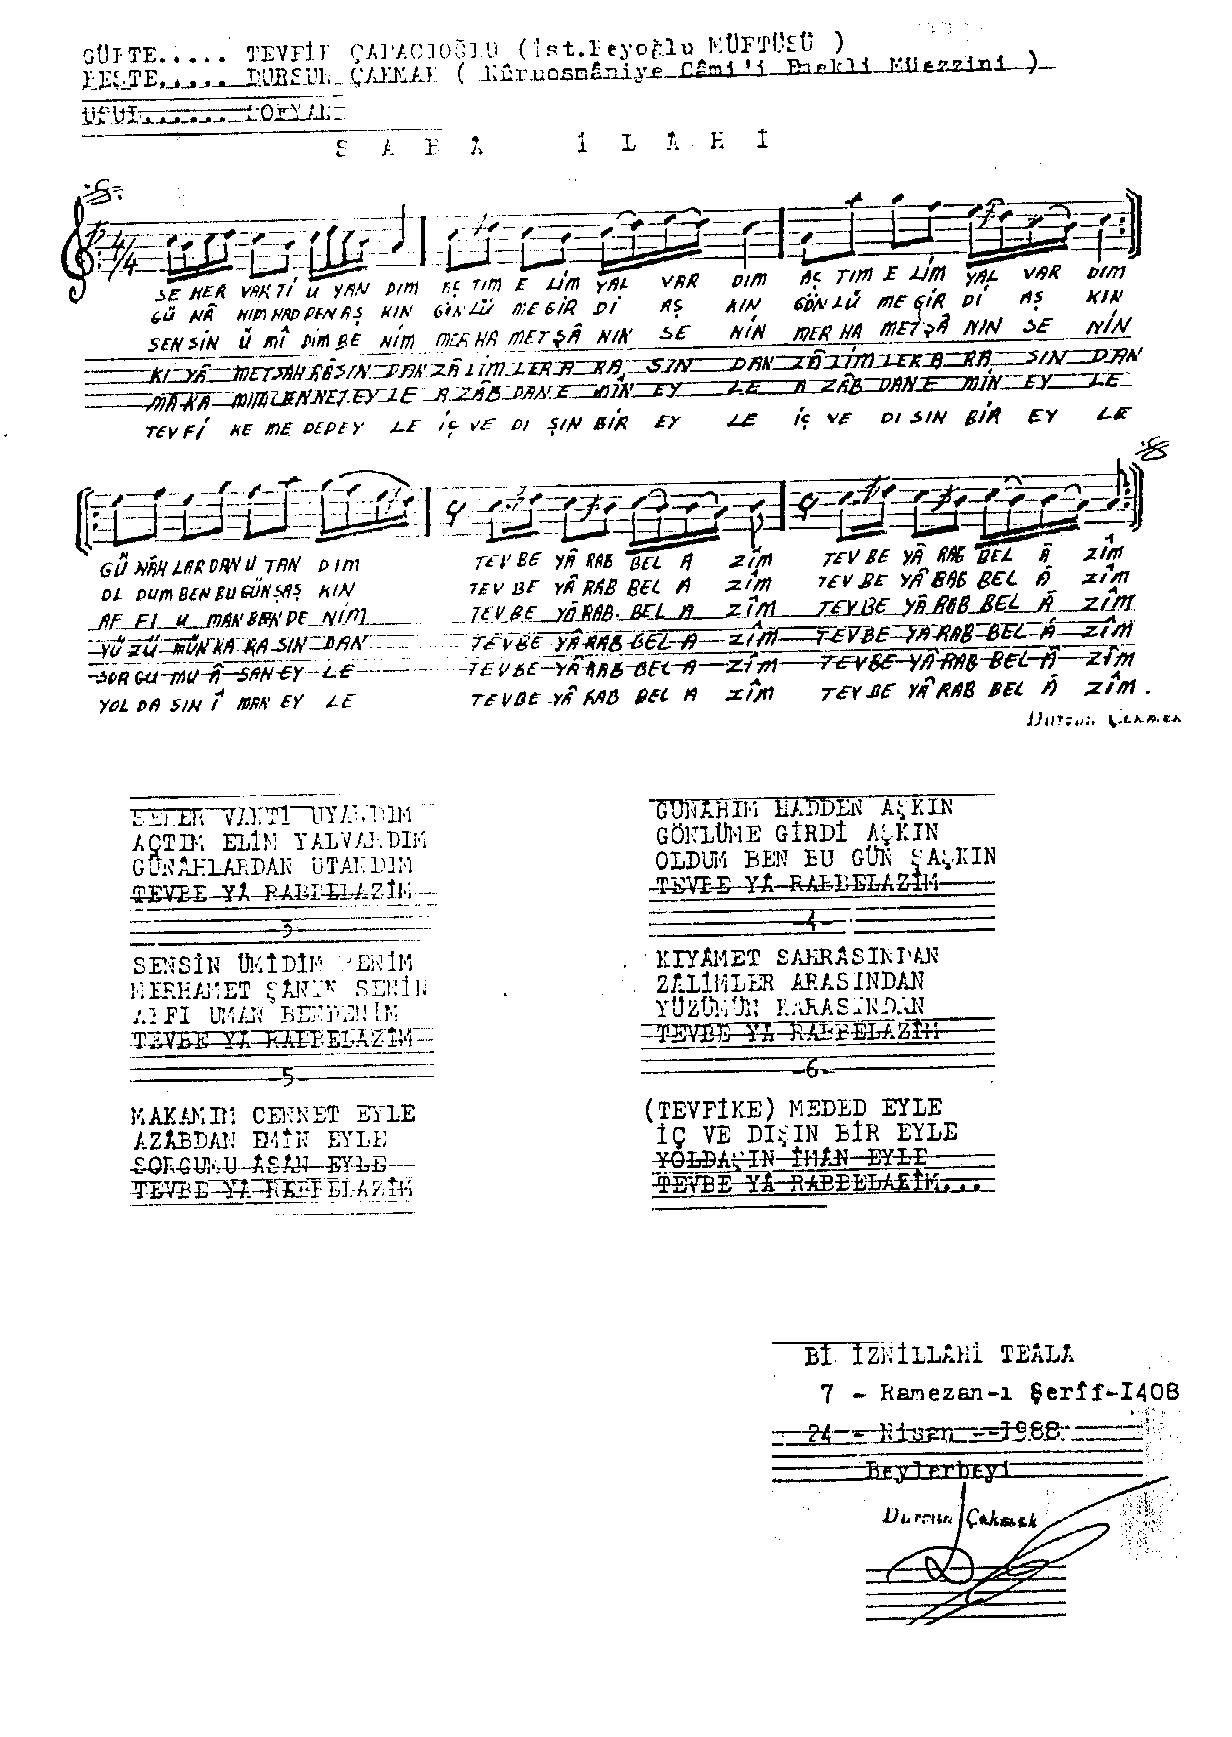 GÜFTE..... TEVFİK ÇAPACIOĞLU (İst.Beyoğlu MÜFTÜSÜ )
BESTE..... DURSUN ÇAKMAK ( Nûruosmâniye Câmi'i Emekli Müezzini )
USUL...... SOFYAN
SABÂ İLÂHİ
4/4
SE HER VAKTİ U YAN DIM AÇ TIM E LİM YAL VAR DIM AÇ TIM E LİM YAL VAR DIM
GÜ NÂ HIM HADDEN AŞ KIN GÖN LÜ ME GİR Dİ AŞ KIN GÖN LÜ ME GİR Dİ AŞ KIN
SEN SİN Ü MÎ DİM BE NİM MER HA MET ŞÂ NIN SE NİN MER HA MET ŞÂ NIN SE NİN
KI YÂ MET SAH RÂ SIN DAN ZÂ LİM LER A RA SIN DAN ZÂ LİM LER A RA SIN DAN
MA KA MIM CENNET EY LE A ZÂB DAN E MİN EY LE A ZÂB DAN E MİN EY LE
TEV Fİ KE ME DED EY LE İÇ VE DI ŞIN BİR EY LE İÇ VE DI ŞIN BİR EY LE
GÜ NÂH LAR DAN U TAN DIM TEV BE YÂ RAB BEL A ZÎM TEV BE YÂ RAB BEL Â ZÎM
OL DUM BEN BU GÜN ŞAŞ KIN TEV BE YÂ RAB BEL A ZÎM TEV BE YÂ RAB BEL Â ZÎM
AF FI U MAN BEN DE NİM TEV BE YÂ RAB BEL A ZÎM TEV BE YÂ RAB BEL Â ZÎM
YÜ ZÜ MÜN KA RA SIN DAN TEV BE YÂ RAB BEL A ZÎM TEV BE YÂ RAB BEL Â ZÎM
SOR GU MU Â SAN EY LE TEV BE YÂ RAB BEL A ZÎM TEV BE YÂ RAB BEL Â ZÎM
YOL DA ŞIN Î MAN EY LE TEV BE YÂ RAB BEL A ZÎM TEV BE YÂ RAB BEL Â ZÎM .
Dursun Çakmak
SEHER VAKTİ UYANDIM
AÇTIM ELİM YALVARDIM
GÜNAHLARDAN UTANDIM
TEVBE YÂ RABBELAZÎM
GÜNAHIM HADDEN AŞKIN
GÖNLÜME GİRDİ AŞKIN
OLDUM BEN BU GÜN ŞAŞKIN
TEVBE YÂ RABBELAZÎM
-3-
SENSİN ÜMİDİM BENİM
MERHAMET ŞÂNIN SENİN
AFFI UMAN BENDENİM
TEVBE YÂ RABBELAZÎM
-4-
KIYÂMET SAHRASINDAN
ZÂLİMLER ARASINDAN
YÜZÜMÜN KARASINDAN
TEVBE YÂ RABBELAZÎM
-5-
MAKAMIM CENNET EYLE
AZÂBDAN EMÎN EYLE
SORGUMU ÂSAN EYLE
TEVBE YÂ RABBELAZÎM
-6-
(TEVFİKE) MEDED EYLE
İÇ VE DIŞIN BİR EYLE
YOLDAŞIN ÎMÂN EYLE
TEVBE YÂ RABBELAZÎM...
Bİ İZNİLLÂHİ TEÂLÂ
7 - Ramezan-ı Şerîf-I408
24 - Nisan - I988
Beylerbeyi
Dursun Çakmak